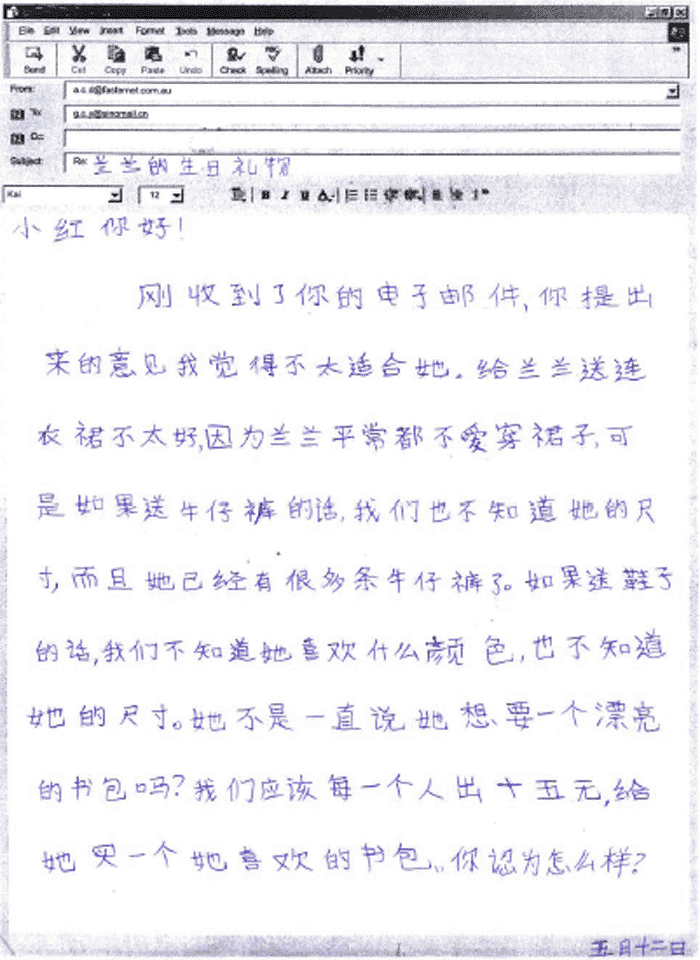 File Edit View Insert Format Tools Message Help
Send Cut Copy Paste Undo Check Spelling Attach Priority
From:
To:
Cc:
Subject: Re: 兰兰的生日礼物
Kai 12 B I U A
小红你好!
刚收到了你的电子邮件,你提出
来的意见我觉得不太适合她。给兰兰送连
衣裙不太好,因为兰兰平常都不愛穿裙子,可
是如果送牛仔裤的话,我们也不知道她的尺
寸,而且她已经有很多条牛仔裤了。如果送鞋子
的话,我们不知道她喜欢什么颜色,也不知道
她的尺寸。她不是一直说她想要一个漂亮
的书包吗?我们应该每一个人出十五元,给
她买一个她喜欢的书包。你认为怎么样?
五月十二日